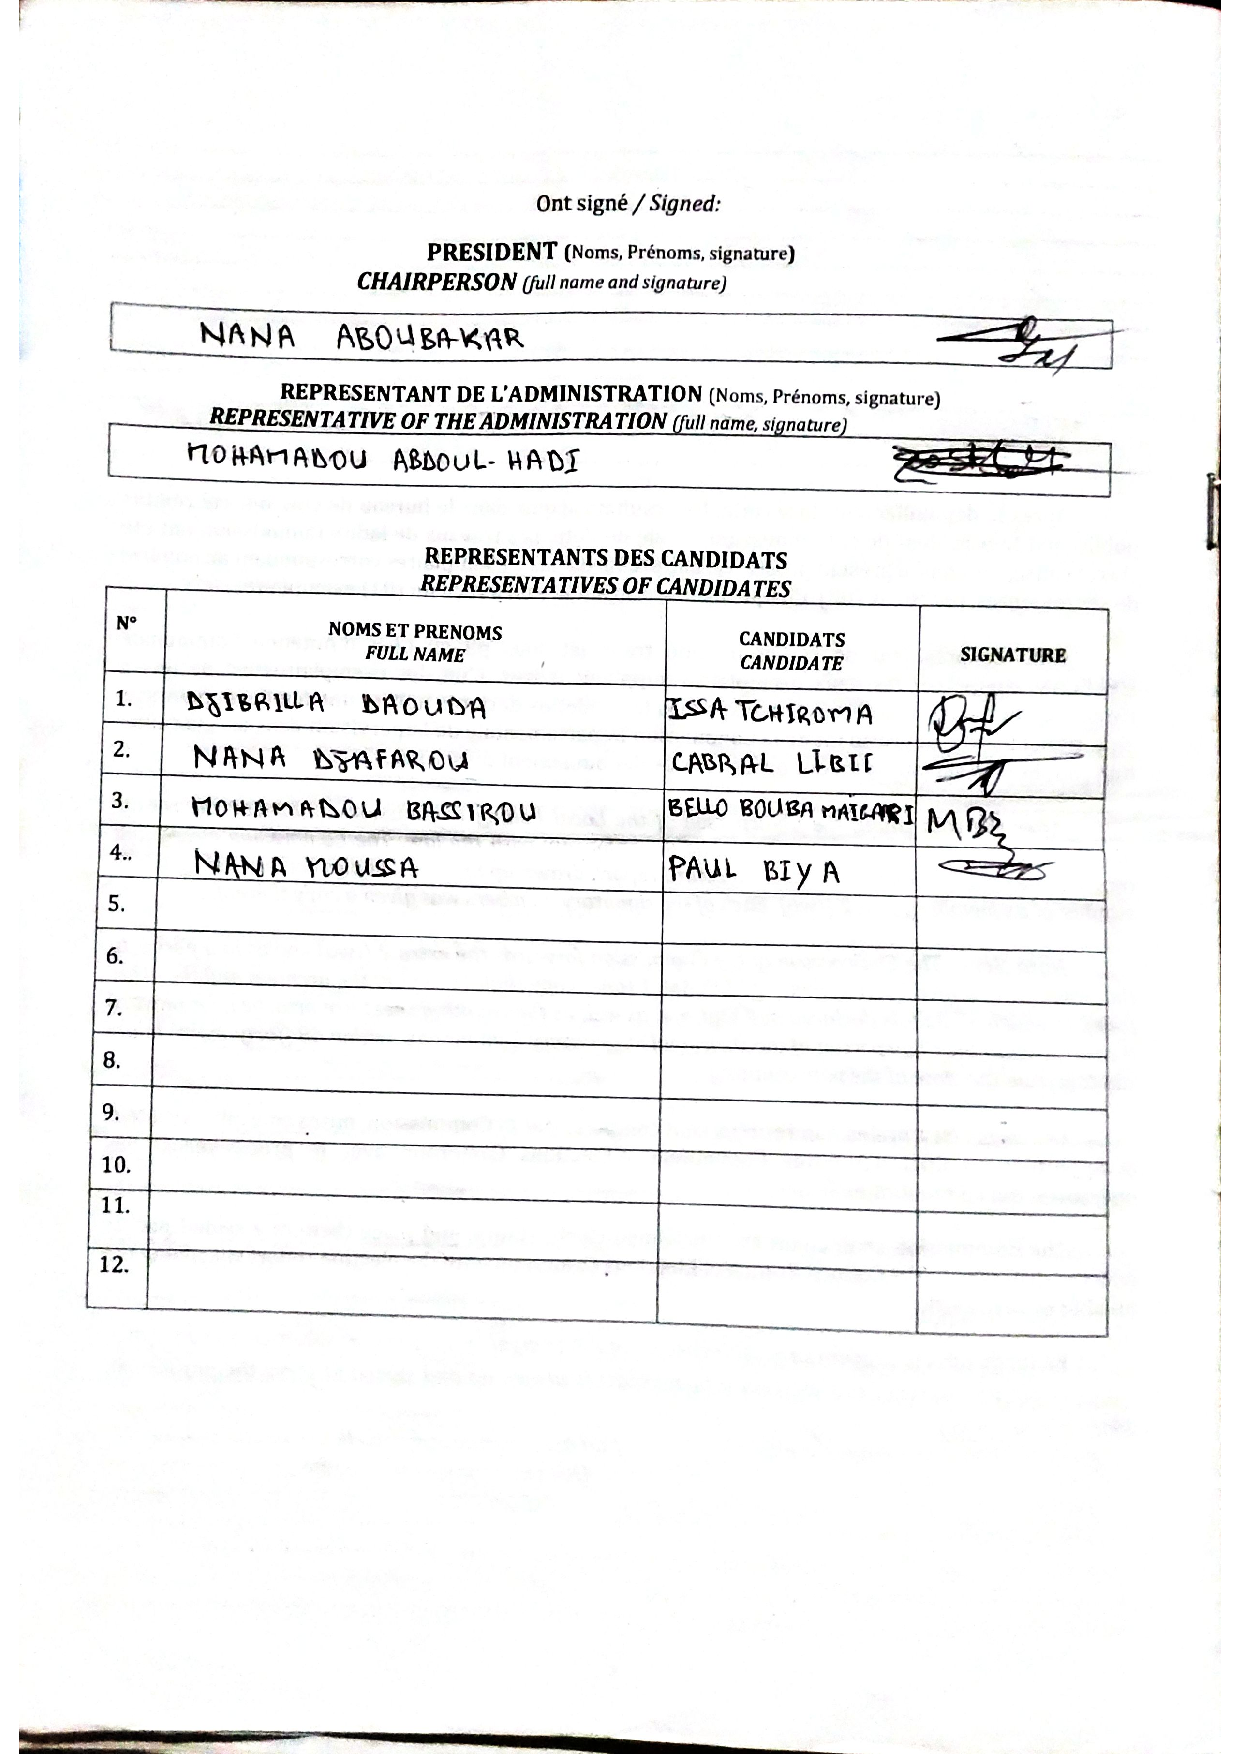 Ont signé / Signed:
PRESIDENT (Noms, Prénoms, signature)
CHAIRPERSON (full name and signature)
NANA ABOUBAKAR
REPRESENTANT DE L'ADMINISTRATION (Noms, Prénoms, signature)
REPRESENTATIVE OF THE ADMINISTRATION (full name, signature)
MOHAMADOU ABDOUL-HADI
REPRESENTANTS DES CANDIDATS
REPRESENTATIVES OF CANDIDATES
N° NOMS ET PRENOMS FULL NAME CANDIDATS CANDIDATE SIGNATURE
1. DJIBRILLA DAOUDA ISSA TCHIROMA
2. NANA DJAFAROU CABRAL LIBII
3. MOHAMADOU BASSIROU BELLO BOUBA MAIGARI MBZ
4.. NANA MOUSSA PAUL BIYA
5.
6.
7.
8.
9.
10.
11.
12.